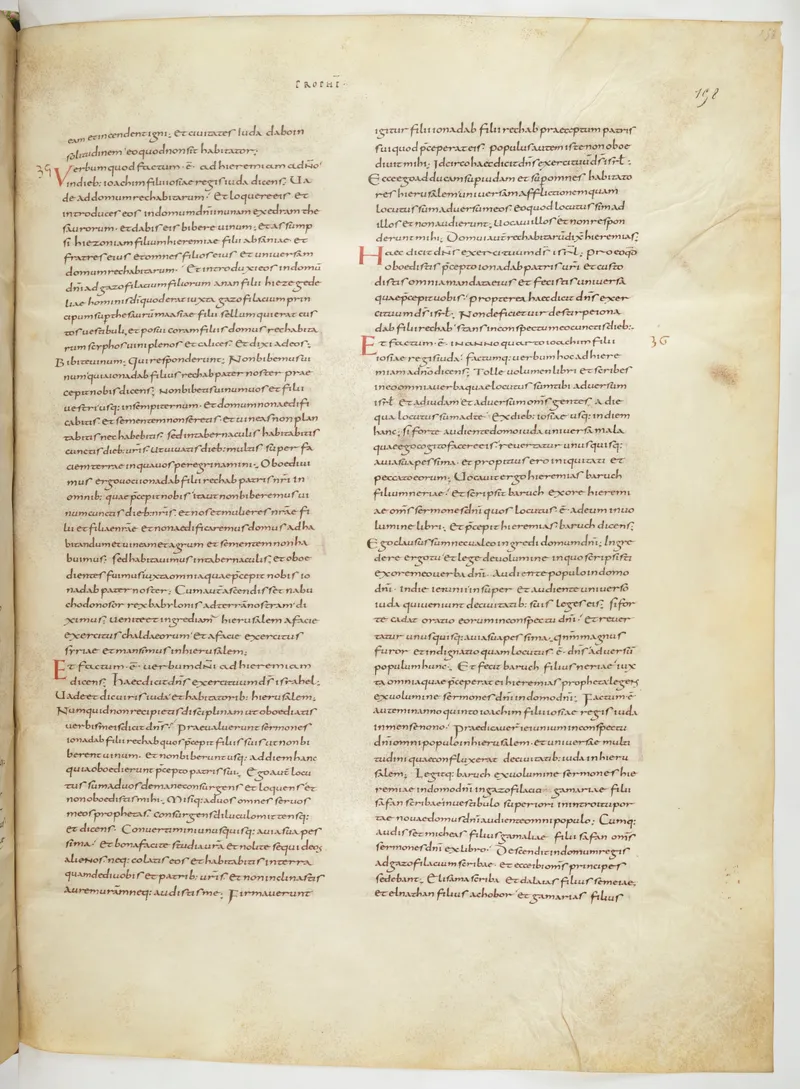 PROPHET·
198
eam et incendent igni; Et ciuitates Iuda dabo in
solitudinem eo quod non sit habitator;
39 Verbum quod factum · ē · ad hieremiam a dnō
in dieb: ioachim filii iosiae regis iuda dicens; Ua
de ad domum rechabitarum · Et loquere eis et
introduces eos in domum dnī in unam exedram the
saurorum · et dabis eis bibere uinum; et assump
si hiezoniam filium hieremiae filii absaniae · et
fratres eius et omnes filios eius et uniuersam
domum rechabitarum · Et introduxi eos in domū
dnī ad gazofilacium filiorum anan filii hiezegede
liae hominis dī quod erat iuxta gazofilacium prin
cipum sup thesaurū maasiae filii sellum qui erat cus
tos uestibuli, et posui coram filiis domus rechabita
rum scyphos uini plenos et calices · Et dixi ad eos;
Bibite uinum; Qui responderunt; Non bibemus ui
num quia ionadab filius rechab pater noster prae
cepit nobis dicens; Non bibetis uinum uos et filii
uestri usq: in sempiternum · et domum non aedifi
cabitis et sementem non seretis et uineas non plan
tabitis nec habebitis · sed in tabernaculis habitabitis
cunctis dieb: uris ut uiuatis dieb: multis super fa
ciem terrae in qua uos peregrinamini; Oboediui
mus ergo uoci ionadab filii rechab patris nrī in
omnib: quae p̄cepit nobis ita ut non biberemus ui
num cunctis dieb: nris · et nos et mulieres nrāe fi
lii et filiae nrāe et non aedificaremus domus ad ha
bitandum et uineam et agrum et sementem non ha
buimus · sed habitauimus in tabernaculis; et oboe
dientes fuimus iuxta omnia quae p̄cepit nobis io
nadab pater noster; Cum autē ascendisset nabu
chodonosor rex babylonis ad terrā nostram · di
ximus; Uenite et ingrediamur hierusalem a facie
exercitus chaldaeorum · et a facie exercitus
syriae et mansimus in hierusalem;
Et factum · ē · uerbum dnī ad hieremiam
dicens; Haec dicit dns̄ exercituum ds̄ israhel;
Uade et dic uiris iuda et habitatorib: hierusalem;
Numquid non recipietis disciplinam ut oboediatis
uerbis meis dicit dns̄; Praeualuerunt sermones
ionadab filii rechab quos p̄cepit filiis suis ut non bi
berent uinum · et non biberunt usq: ad diem hanc
quia oboedierunt p̄cepto patris sui; Ego autē locu
tus sum ad uos de mane consurgens et loquens et
non oboedistis mihi; Misiq: ad uos omnes seruos
meos prophetas · consurgens diluculo mittensq:
et dicens · Conuertimini unusquisq: a uia sua pes
sima · et bona facite studia urā et nolite sequi deos
alienos neq: colatis eos et habitabitis in terra
quam dedi uobis et patrib: uris et non inclinastis
aurem urām neq: audistis me; Firmauerunt
igitur filii ionadab filii rechab praeceptum patris
sui quod p̄ceperat eis · populus autem iste non oboe
diuit mihi; Idcirco haec dicit dns̄ exercituū ds̄ isrl̄;
Ecce ego adducam sup iudam et sup omnes habitato
res hierusalem uniuersam afflictionem quam
locutus sum aduersum eos · eo quod locutus sum ad
illos et non audierunt; Uocaui illos et non respon
derunt mihi; Domui autē rechabitarū dix̄ hieremias;
Haec dicit dns̄ exercituum ds̄ isrl̄; pro eo qd
oboedistis p̄cepto ionadab patris uri et custo
distis omnia mandata eius et fecistis uniuersa
quae p̄cepit uobis · propterea haec dicit dns̄ exer
cituum ds̄ isrl̄; Non deficiet uir de stirpe iona
dab filii rechab stans in conspectu meo cunctis dieb:.
Et factum · ē · IN ANNO quarto ioachim filii 36
iosiae regis iuda · factum q: uerbum hoc ad hiere
miam a dnō dicens; Tolle uolumen libri et scribes
in eo omnia uerba quae locutus sum tibi aduersum
isrl̄ et ad iudam et aduersum oms̄ gentes · a die
qua locutus sum ad te · ex dieb: iosiae usq: in diem
hanc; si forte audiente domo iuda uniuersa mala
quae ego cogito facere eis · reuertatur unusquisq:
a uia sua pessima · et propitius ero iniquitati et
peccato eorum; Uocauit ergo hieremias baruch
filium neriae · et scripsit baruch ex ore hieremi
ae oms̄ sermones dnī quos locutus · ē · ad eum in uo
lumine libri; Et p̄cepit hieremias baruch dicens;
Ego clausus sum nec ualeo ingredi domum dnī; Ingre
dere ergo tu et lege de uolumine in quo scripsisti
ex ore meo uerba dnī · Audiente populo in domo
dnī · in die ieiunii insuper et audiente uniuerso
iuda qui ueniunt de ciuitatib: suis leges eis; si for
te cadat oratio eorum in conspectu dnī · et reuer
tatur unusquisq: a uia sua pessima; qnm̄ magnus
furor et indignatio quam locutus · ē · dns̄ aduersū
populum hunc; Et fecit baruch filius neriae iux
ta omnia quae p̄ceperat ei hieremias propheta legens
ex uolumine sermones dnī in domo dnī; Factum · ē ·
autem in anno quinto ioachim filii iosiae regis iuda
in mense nono · Praedicauerunt ieiunium in conspectu
dnī omni populo in hierusalem · et uniuersae multi
tudini quae confluxerat de ciuitatib: iuda in hieru
salem; Legitq: baruch ex uolumine sermones hie
remiae in domo dnī in gazofilacio · gamariae filii
safan scribae in uestibulo superiori in introitu por
tae nouae domus dnī audiente omni populo; Cumq:
audisset micheas filius gamaliae · filii safan oms̄
sermones dnī ex libro · Descendit in domum regis
ad gazofilacium scribae · et ecce ibi oms̄ principes
sedebant; Elisama scriba · et dalaias filius semeiae;
et elnathan filius achobor · et gamarias filius